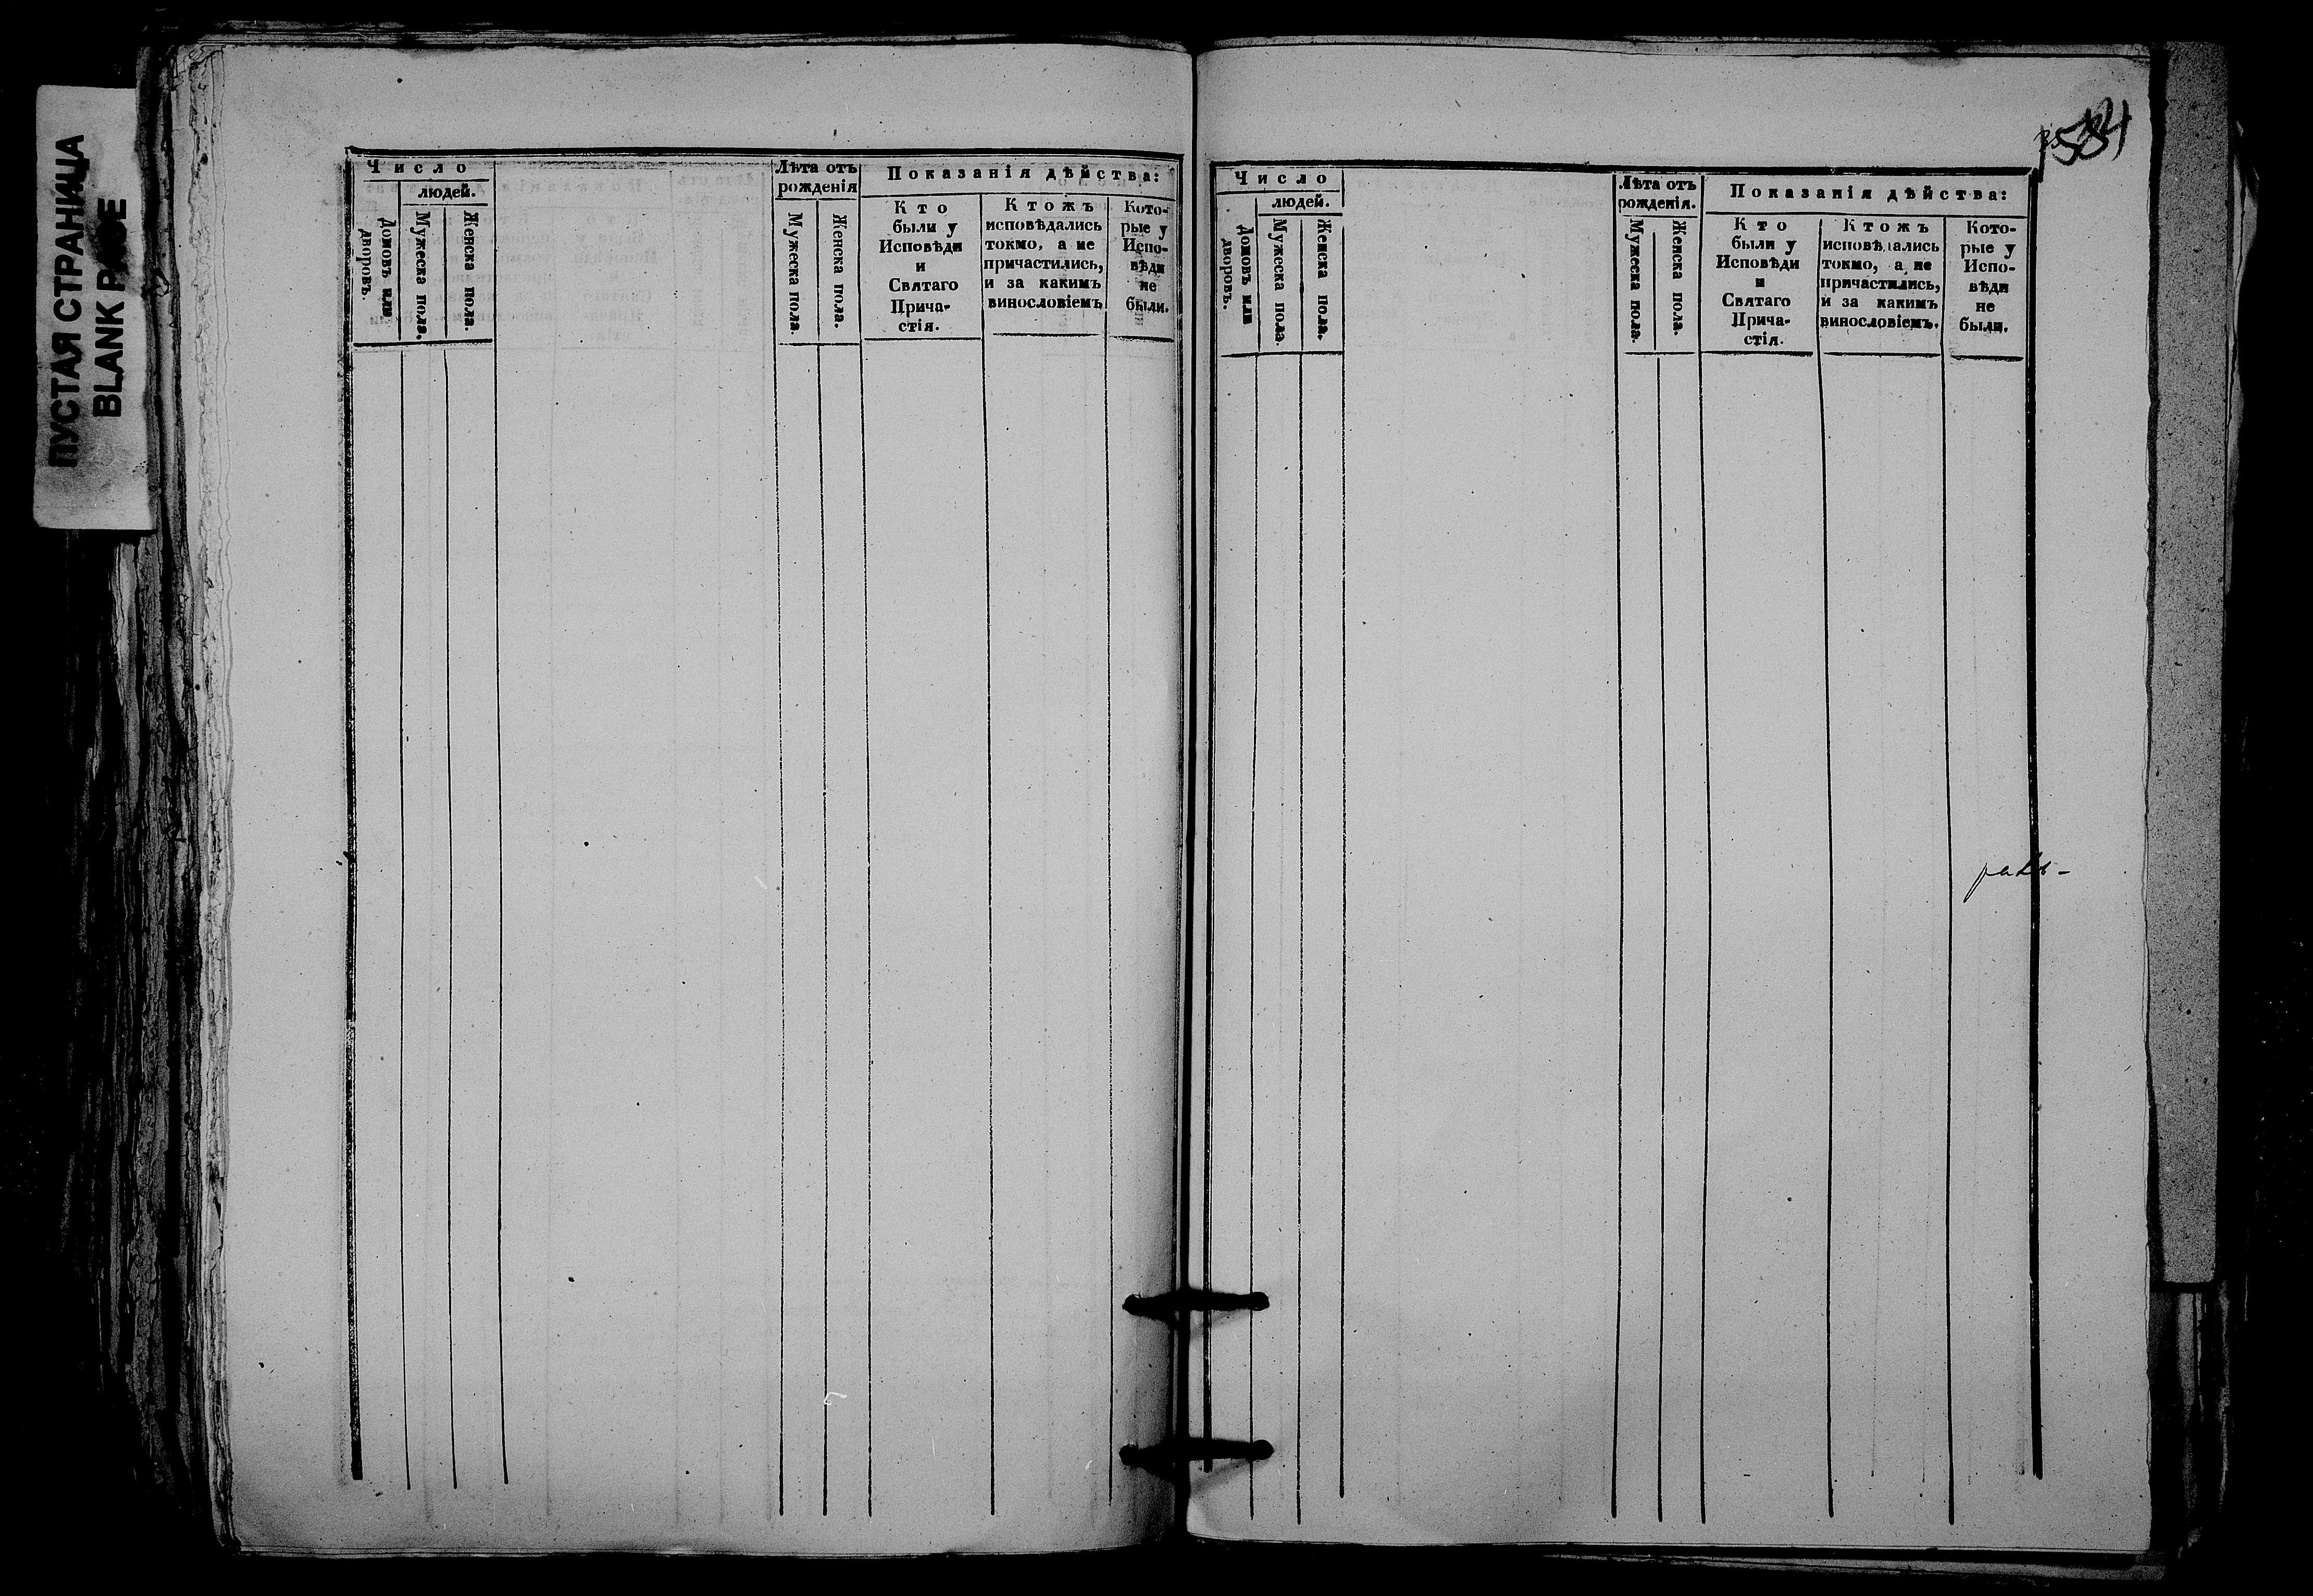 ПУСТАЯ СТРАНИЦА
BLANK PAGE
Число
людей.
Домовъ или
дворовъ.
Мужеска пола.
Женска пола.
Лѣта отъ
рожденія
Мужеска пола.
Женска пола.
Показанія дѣйства:
Кто
были у
Исповѣди
и
Святаго
Прича-
стія.
Ктожъ
исповѣдались
токмо, а не
причастились,
и за какимъ
винословіемъ
Кото-
рые у
Испо-
вѣди
не
были.
Число
людей.
Домовъ или
дворовъ.
Мужеска пола.
Женска пола.
Лѣта отъ
рожденія.
Мужеска пола.
Женска пола.
Показанія дѣйства:
Кто
были у
Исповѣди
и
Святаго
Прича-
стія.
Ктожъ
исповѣдались
токмо, а не
причастились,
и за какимъ
винословіемъ.
Кото-
рые у
Испо-
вѣди
не
были.